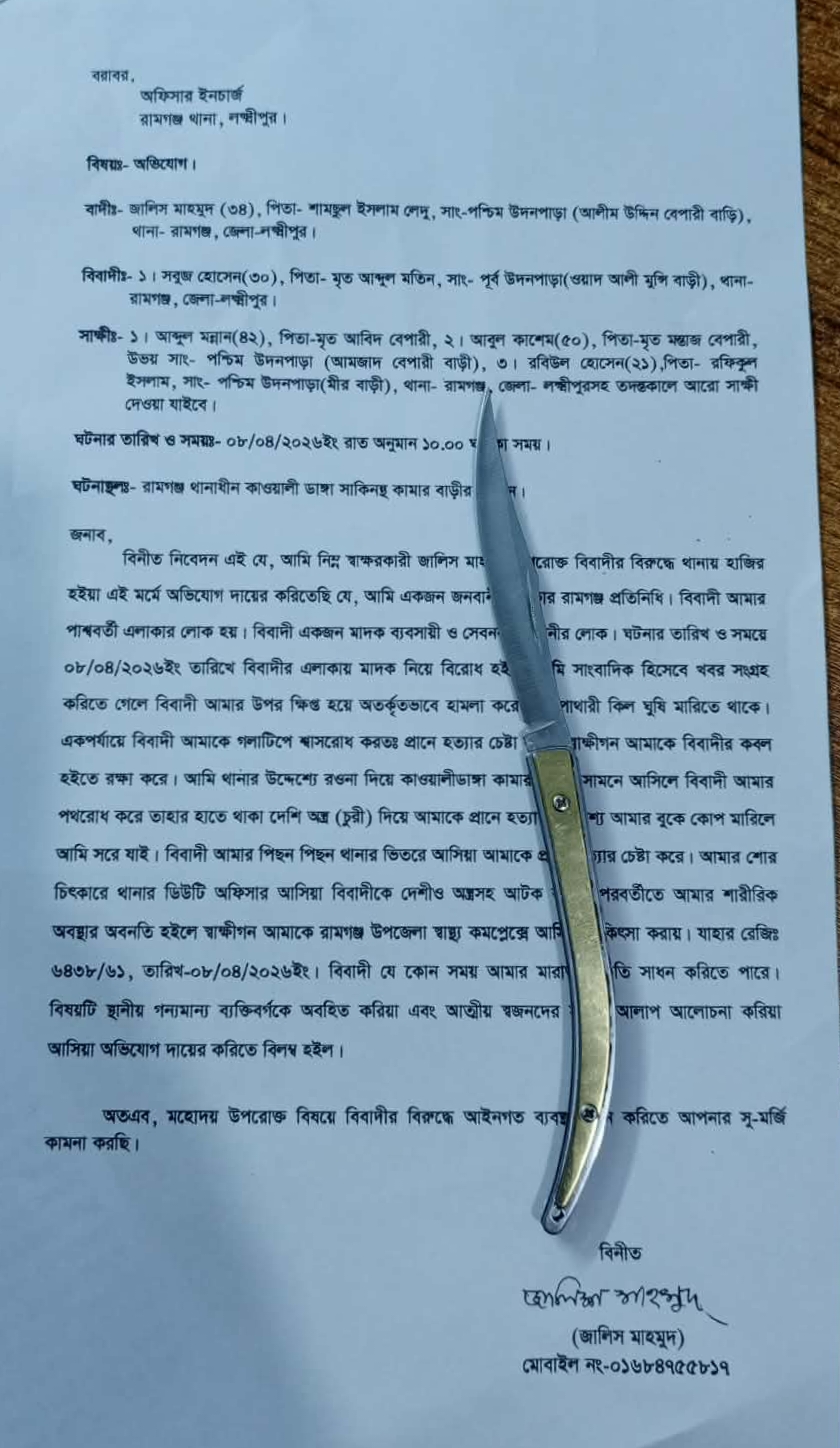 বরাবর,
অফিসার ইনচার্জ
রামগঞ্জ থানা, লক্ষ্মীপুর।
বিষয়ঃ- অভিযোগ।
বাদীঃ- জালিস মাহমুদ (৩৪), পিতা- শামছুল ইসলাম লেদু, সাং-পশ্চিম উদনপাড়া (আলীম উদ্দিন বেপারী বাড়ি),
থানা- রামগঞ্জ, জেলা-লক্ষ্মীপুর।
বিবাদীঃ- ১। সবুজ হোসেন(৩০), পিতা- মৃত আব্দুল মতিন, সাং- পূর্ব উদনপাড়া(ওয়াদ আলী মুন্সি বাড়ী), থানা-
রামগঞ্জ, জেলা-লক্ষ্মীপুর।
সাক্ষীঃ- ১। আব্দুল মন্নান(৪২), পিতা-মৃত আবিদ বেপারী, ২। আবুল কাশেম(৫০), পিতা-মৃত মন্তাজ বেপারী,
উভয় সাং- পশ্চিম উদনপাড়া (আমজাদ বেপারী বাড়ী), ৩। রবিউল হোসেন(২১),পিতা- রফিকুল
ইসলাম, সাং- পশ্চিম উদনপাড়া(মীর বাড়ী), থানা- রামগঞ্জ, জেলা- লক্ষ্মীপুরসহ তদন্তকালে আরো সাক্ষী
দেওয়া যাইবে।
ঘটনার তারিখ ও সময়ঃ- ০৮/০৪/২০২৬ইং রাত অনুমান ১০.০০ সময়।
ঘটনাস্থলঃ- রামগঞ্জ থানাধীন কাওয়ালী ডাঙ্গা সাকিনস্থ কামার বাড়ীর
জনাব,
বিনীত নিবেদন এই যে, আমি নিম্ন স্বাক্ষরকারী জালিস বিবাদীর বিরুদ্ধে থানায় হাজির
হইয়া এই মর্মে অভিযোগ দায়ের করিতেছি যে, আমি একজন রামগঞ্জ প্রতিনিধি। বিবাদী আমার
পাশ্ববর্তী এলাকার লোক হয়। বিবাদী একজন মাদক ব্যবসায়ী ও লোক। ঘটনার তারিখ ও সময়ে
০৮/০৪/২০২৬ইং তারিখে বিবাদীর এলাকায় মাদক নিয়ে বিরোধ সাংবাদিক হিসেবে খবর সংগ্রহ
করিতে গেলে বিবাদী আমার উপর ক্ষিপ্ত হয়ে অতর্কৃতভাবে হামলা করে কিল ঘুষি মারিতে থাকে।
একপর্যায়ে বিবাদী আমাকে গলাটিপে শ্বাসরোধ করতঃ প্রানে হত্যার চেষ্টা আমাকে বিবাদীর কবল
হইতে রক্ষা করে। আমি থানার উদ্দেশ্যে রওনা দিয়ে কাওয়ালীডাঙ্গা কামার সামনে আসিলে বিবাদী আমার
পথরোধ করে তাহার হাতে থাকা দেশি অস্ত্র (চুরী) দিয়ে আমাকে প্রানে আমার বুকে কোপ মারিলে
আমি সরে যাই। বিবাদী আমার পিছন পিছন থানার ভিতরে আসিয়া আমাকে চেষ্টা করে। আমার শোর
চিৎকারে থানার ডিউটি অফিসার আসিয়া বিবাদীকে দেশীও অস্ত্রসহ আটক পরবর্তীতে আমার শারীরিক
অবস্থার অবনতি হইলে স্বাক্ষীগন আমাকে রামগঞ্জ উপজেলা স্বাস্থ্য কমপ্লেক্সে করায়। যাহার রেজিঃ
৬৪৩৮/৬১, তারিখ-০৮/০৪/২০২৬ইং। বিবাদী যে কোন সময় আমার সাধন করিতে পারে।
বিষয়টি স্থানীয় গন্যমান্য ব্যক্তিবর্গকে অবহিত করিয়া এবং আত্মীয় স্বজনদের আলাপ আলোচনা করিয়া
আসিয়া অভিযোগ দায়ের করিতে বিলম্ব হইল।
অতএব, মহোদয় উপরোক্ত বিষয়ে বিবাদীর বিরুদ্ধে আইনগত করিতে আপনার সু-মর্জি
কামনা করছি।
বিনীত
জালিস মাহমুদ
(জালিস মাহমুদ)
মোবাইল নং-০১৬৮৪৭৫৫৮১৭